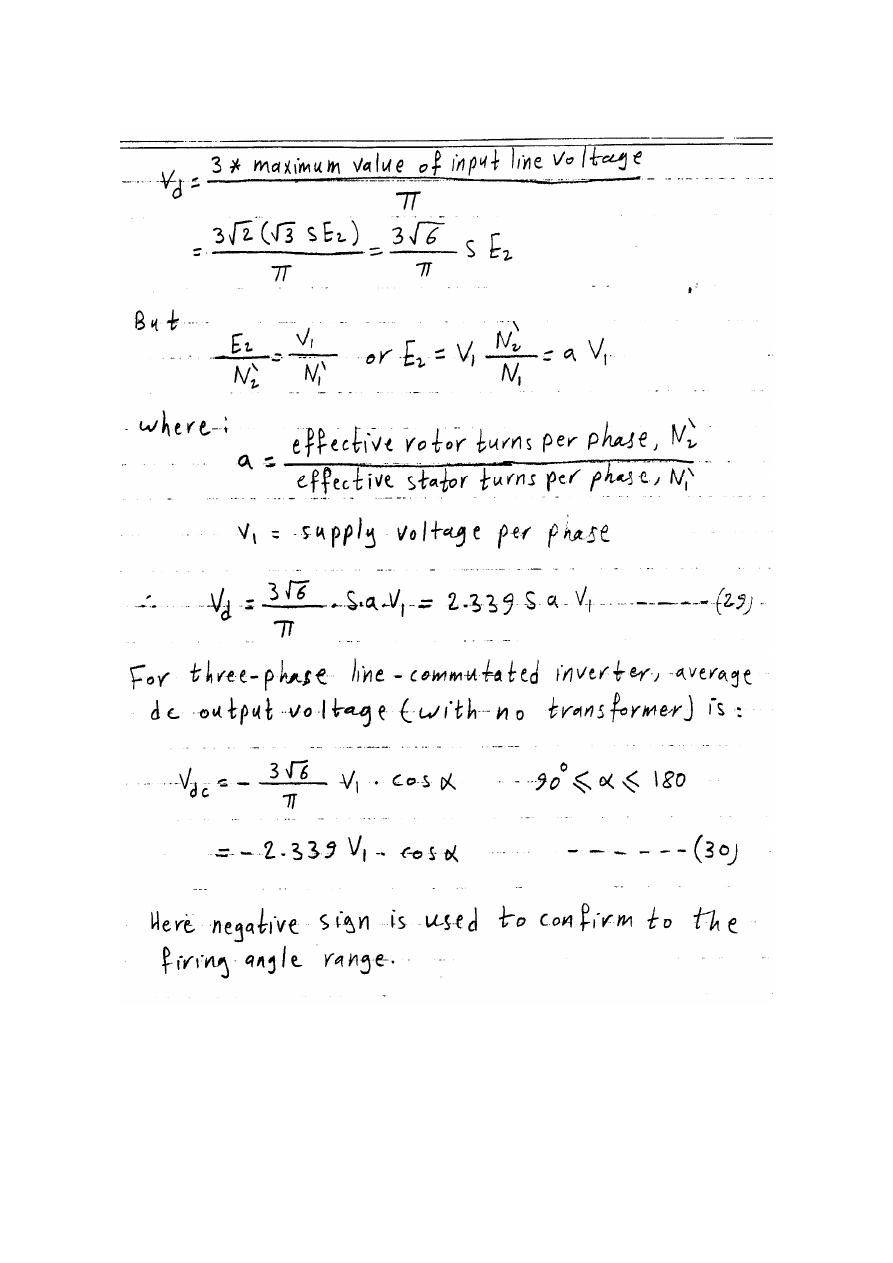 Vd = 3 * maximum value of input line voltage / π
= 3√2 (√3 S E2) / π = 3√6 / π S E2
But
E2 / N2` = V1 / N1` or E2 = V1 N2` / N1 = a V1
where:
a = effective rotor turns per phase, N2` / effective stator turns per phase, N1`
V1 = supply voltage per phase
∴ Vd = 3√6 / π . S.a.V1 = 2.339 S a V1 ------- (29)
For three-phase line-commutated inverter, average
dc output voltage (with no transformer) is:
Vdc = - 3√6 / π V1 . cos α 90° ⩽ α ⩽ 180
= - 2.339 V1 - cos α ------ (30)
Here negative sign is used to confirm to the
firing angle range.